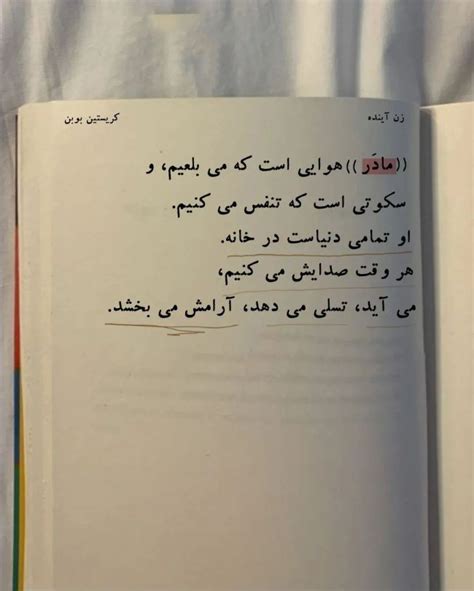 زن آینده
کریستین بوبن
((مادَر)) هوایی است که می بلعیم، و
سکوتی است که تنفس می کنیم.
او تمامی دنیاست در خانه.
هر وقت صدایش می کنیم،
می آید، تسلی می دهد، آرامش می بخشد.